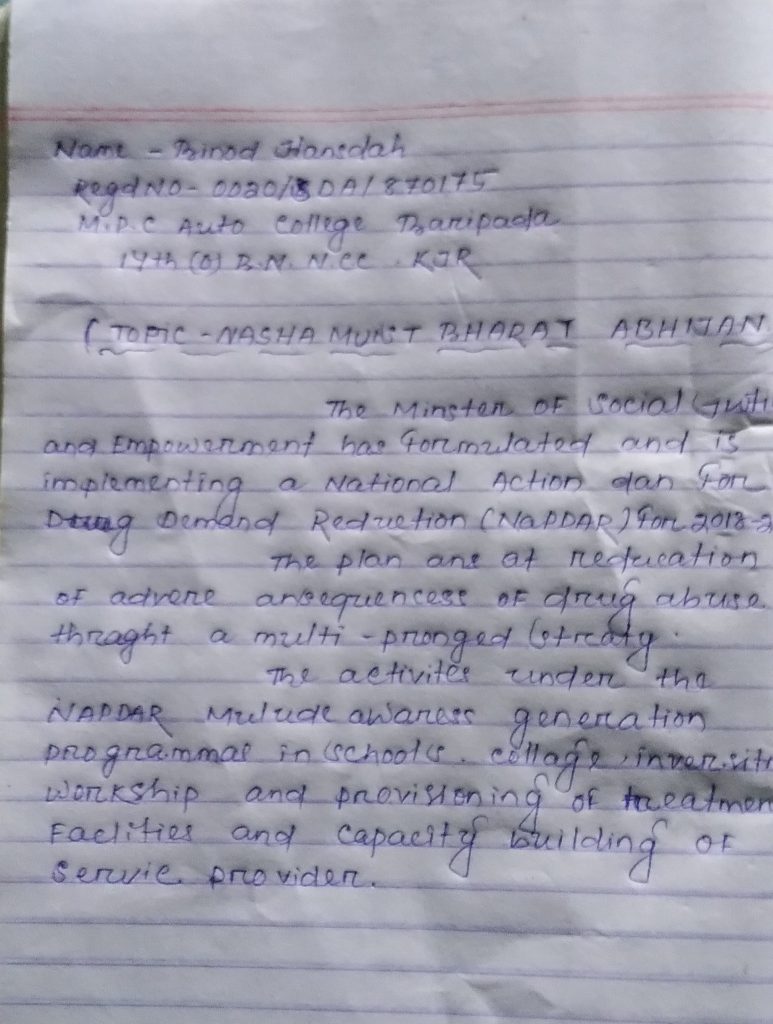 Name - Binod Hansdah
Regd No - OD20/SDA/870175
M.P.C Auto College Baripada
(O) B.N. N.CC. KJR
(TOPIC - NASHA MUKT BHARAT ABHIJAN
The Minster OF Social
and Empowerment has formulated and is
implementing a National Action dan For
Drug Demand Reduction (NAPDAR) for 2018-2
The plan ane at reducation
of advere ansequencess OF drug abuse
thraght a multi - pronged
The activites under tha
NAPDAR awaress generation
programmas in schools. collage,
workship and provisioning OF treatmen
Faclities and capacity building OF
Servie provider.